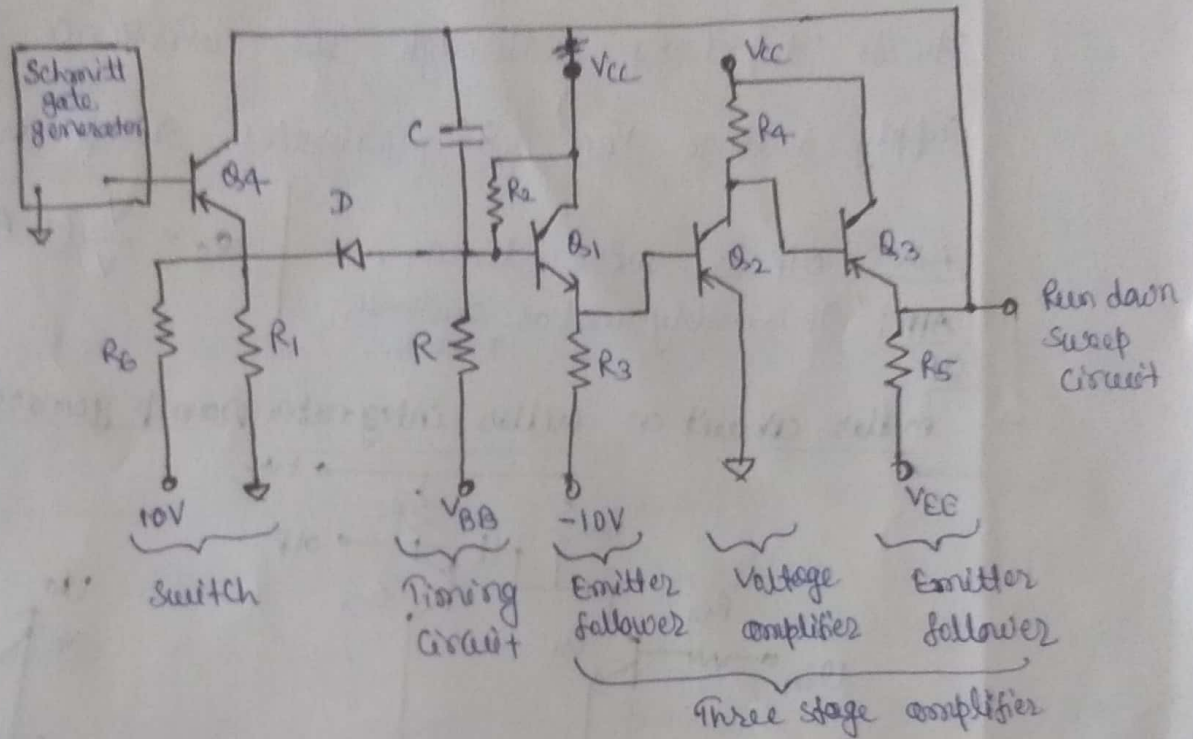 Schmitt
gate
generator
Q4
D
C
R2
VCC
Q1
VCC
R4
Q2
Q3
Run down
sweep
circuit
R6
R1
R
R3
R5
10V
VBB
-10V
VEE
Switch
Timing
circuit
Emitter
follower
Voltage
amplifier
Emitter
follower
Three stage amplifier